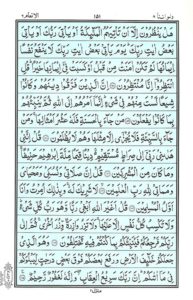 ولواننا ٨ ١٥١ الانعام ٦
هَلْ يَنْظُرُوْنَ اِلَّاۤ اَنْ تَاْتِيَهُمُ الْمَلٰٓئِكَةُ اَوْ يَاْتِيَ رَبُّكَ اَوْ يَاْتِيَ
بَعْضُ اٰيٰتِ رَبِّكَ ؕ يَوْمَ يَاْتِيْ بَعْضُ اٰيٰتِ رَبِّكَ لَا يَنْفَعُ نَفْسًا
اِيْمَانُهَا لَمْ تَكُنْ اٰمَنَتْ مِنْ قَبْلُ اَوْ كَسَبَتْ فِيْۤ اِيْمَانِهَا خَيْرًا ؕ قُلِ
انْتَظِرُوْۤا اِنَّا مُنْتَظِرُوْنَ ۝ اِنَّ الَّذِيْنَ فَرَّقُوْا دِيْنَهُمْ وَكَانُوْا
شِيَعًا لَّسْتَ مِنْهُمْ فِيْ شَيْءٍ ؕ اِنَّمَاۤ اَمْرُهُمْ اِلَى اللّٰهِ ثُمَّ يُنَبِّئُهُمْ
بِمَا كَانُوْا يَفْعَلُوْنَ ۝ مَنْ جَآءَ بِالْحَسَنَةِ فَلَهٗ عَشْرُ اَمْثَالِهَا ۚ وَمَنْ
جَآءَ بِالسَّيِّئَةِ فَلَا يُجْزٰۤى اِلَّا مِثْلَهَا وَهُمْ لَا يُظْلَمُوْنَ ۝ قُلْ اِنَّنِيْ
هَدٰىنِيْ رَبِّيْۤ اِلٰى صِرَاطٍ مُّسْتَقِيْمٍ ۚ دِيْنًا قِيَمًا مِّلَّةَ اِبْرٰهِيْمَ حَنِيْفًا ۚ
وَمَا كَانَ مِنَ الْمُشْرِكِيْنَ ۝ قُلْ اِنَّ صَلَاتِيْ وَنُسُكِيْ وَمَحْيَايَ
وَمَمَاتِيْ لِلّٰهِ رَبِّ الْعٰلَمِيْنَ ۝ لَا شَرِيْكَ لَهٗ ۚ وَبِذٰلِكَ اُمِرْتُ وَاَنَا
اَوَّلُ الْمُسْلِمِيْنَ ۝ قُلْ اَغَيْرَ اللّٰهِ اَبْغِيْ رَبًّا وَّهُوَ رَبُّ كُلِّ شَيْءٍ ؕ وَلَا
تَكْسِبُ كُلُّ نَفْسٍ اِلَّا عَلَيْهَا ۚ وَلَا تَزِرُ وَازِرَةٌ وِّزْرَ اُخْرٰى ۚ ثُمَّ اِلٰى
رَبِّكُمْ مَّرْجِعُكُمْ فَيُنَبِّئُكُمْ بِمَا كُنْتُمْ فِيْهِ تَخْتَلِفُوْنَ ۝ وَهُوَ الَّذِيْ
جَعَلَكُمْ خَلٰٓئِفَ الْاَرْضِ وَرَفَعَ بَعْضَكُمْ فَوْقَ بَعْضٍ دَرَجٰتٍ لِّيَبْلُوَكُمْ
فِيْ مَاۤ اٰتٰىكُمْ ؕ اِنَّ رَبَّكَ سَرِيْعُ الْعِقَابِ ۖ وَاِنَّهٗ لَغَفُوْرٌ رَّحِيْمٌ ۝
منزل ٢